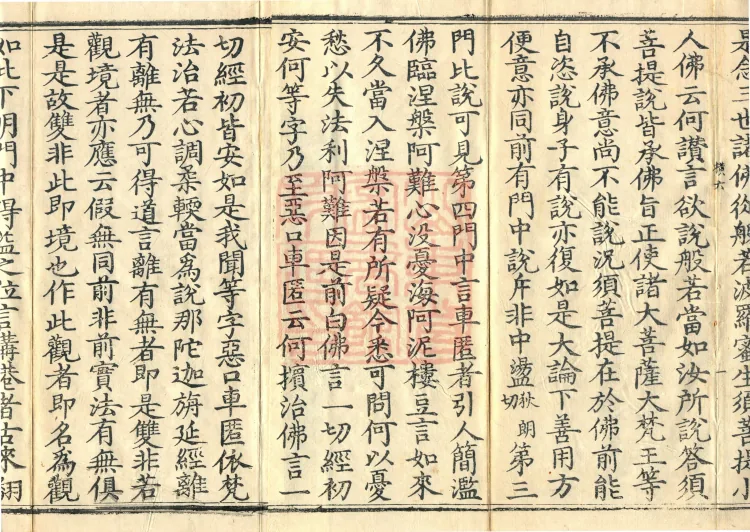 是念三世諸佛從般若波羅蜜生須菩提小
人佛云何讚言欲說般若當如汝所說答須
菩提說皆承佛旨正使諸大菩薩大梵王等
不承佛意尚不能說況須菩提在於佛前能
自恣說身子有說亦復如是大論下善用方
便意亦同前有門中說斥非中盪狄朗切第三
門比說可見第四門中言車匿者引人簡濫
佛臨涅槃阿難心没憂海阿泥樓豆言如來
不久當入涅槃若有所疑今悉可問何以憂
愁以失法利阿難因是前白佛言一切經初
安何等字乃至惡口車匿云何擯治佛言一
切經初皆安如是我聞等字惡口車匿依梵
法治若心調柔輭當為說那陀迦旃延經離
有離無乃可得道言離有無者即是雙非若
觀境者亦應云假無同前非前實法有無俱
是是故雙非此即境也作此觀者即名為觀
如此下明門中得益之位言講巷者古來